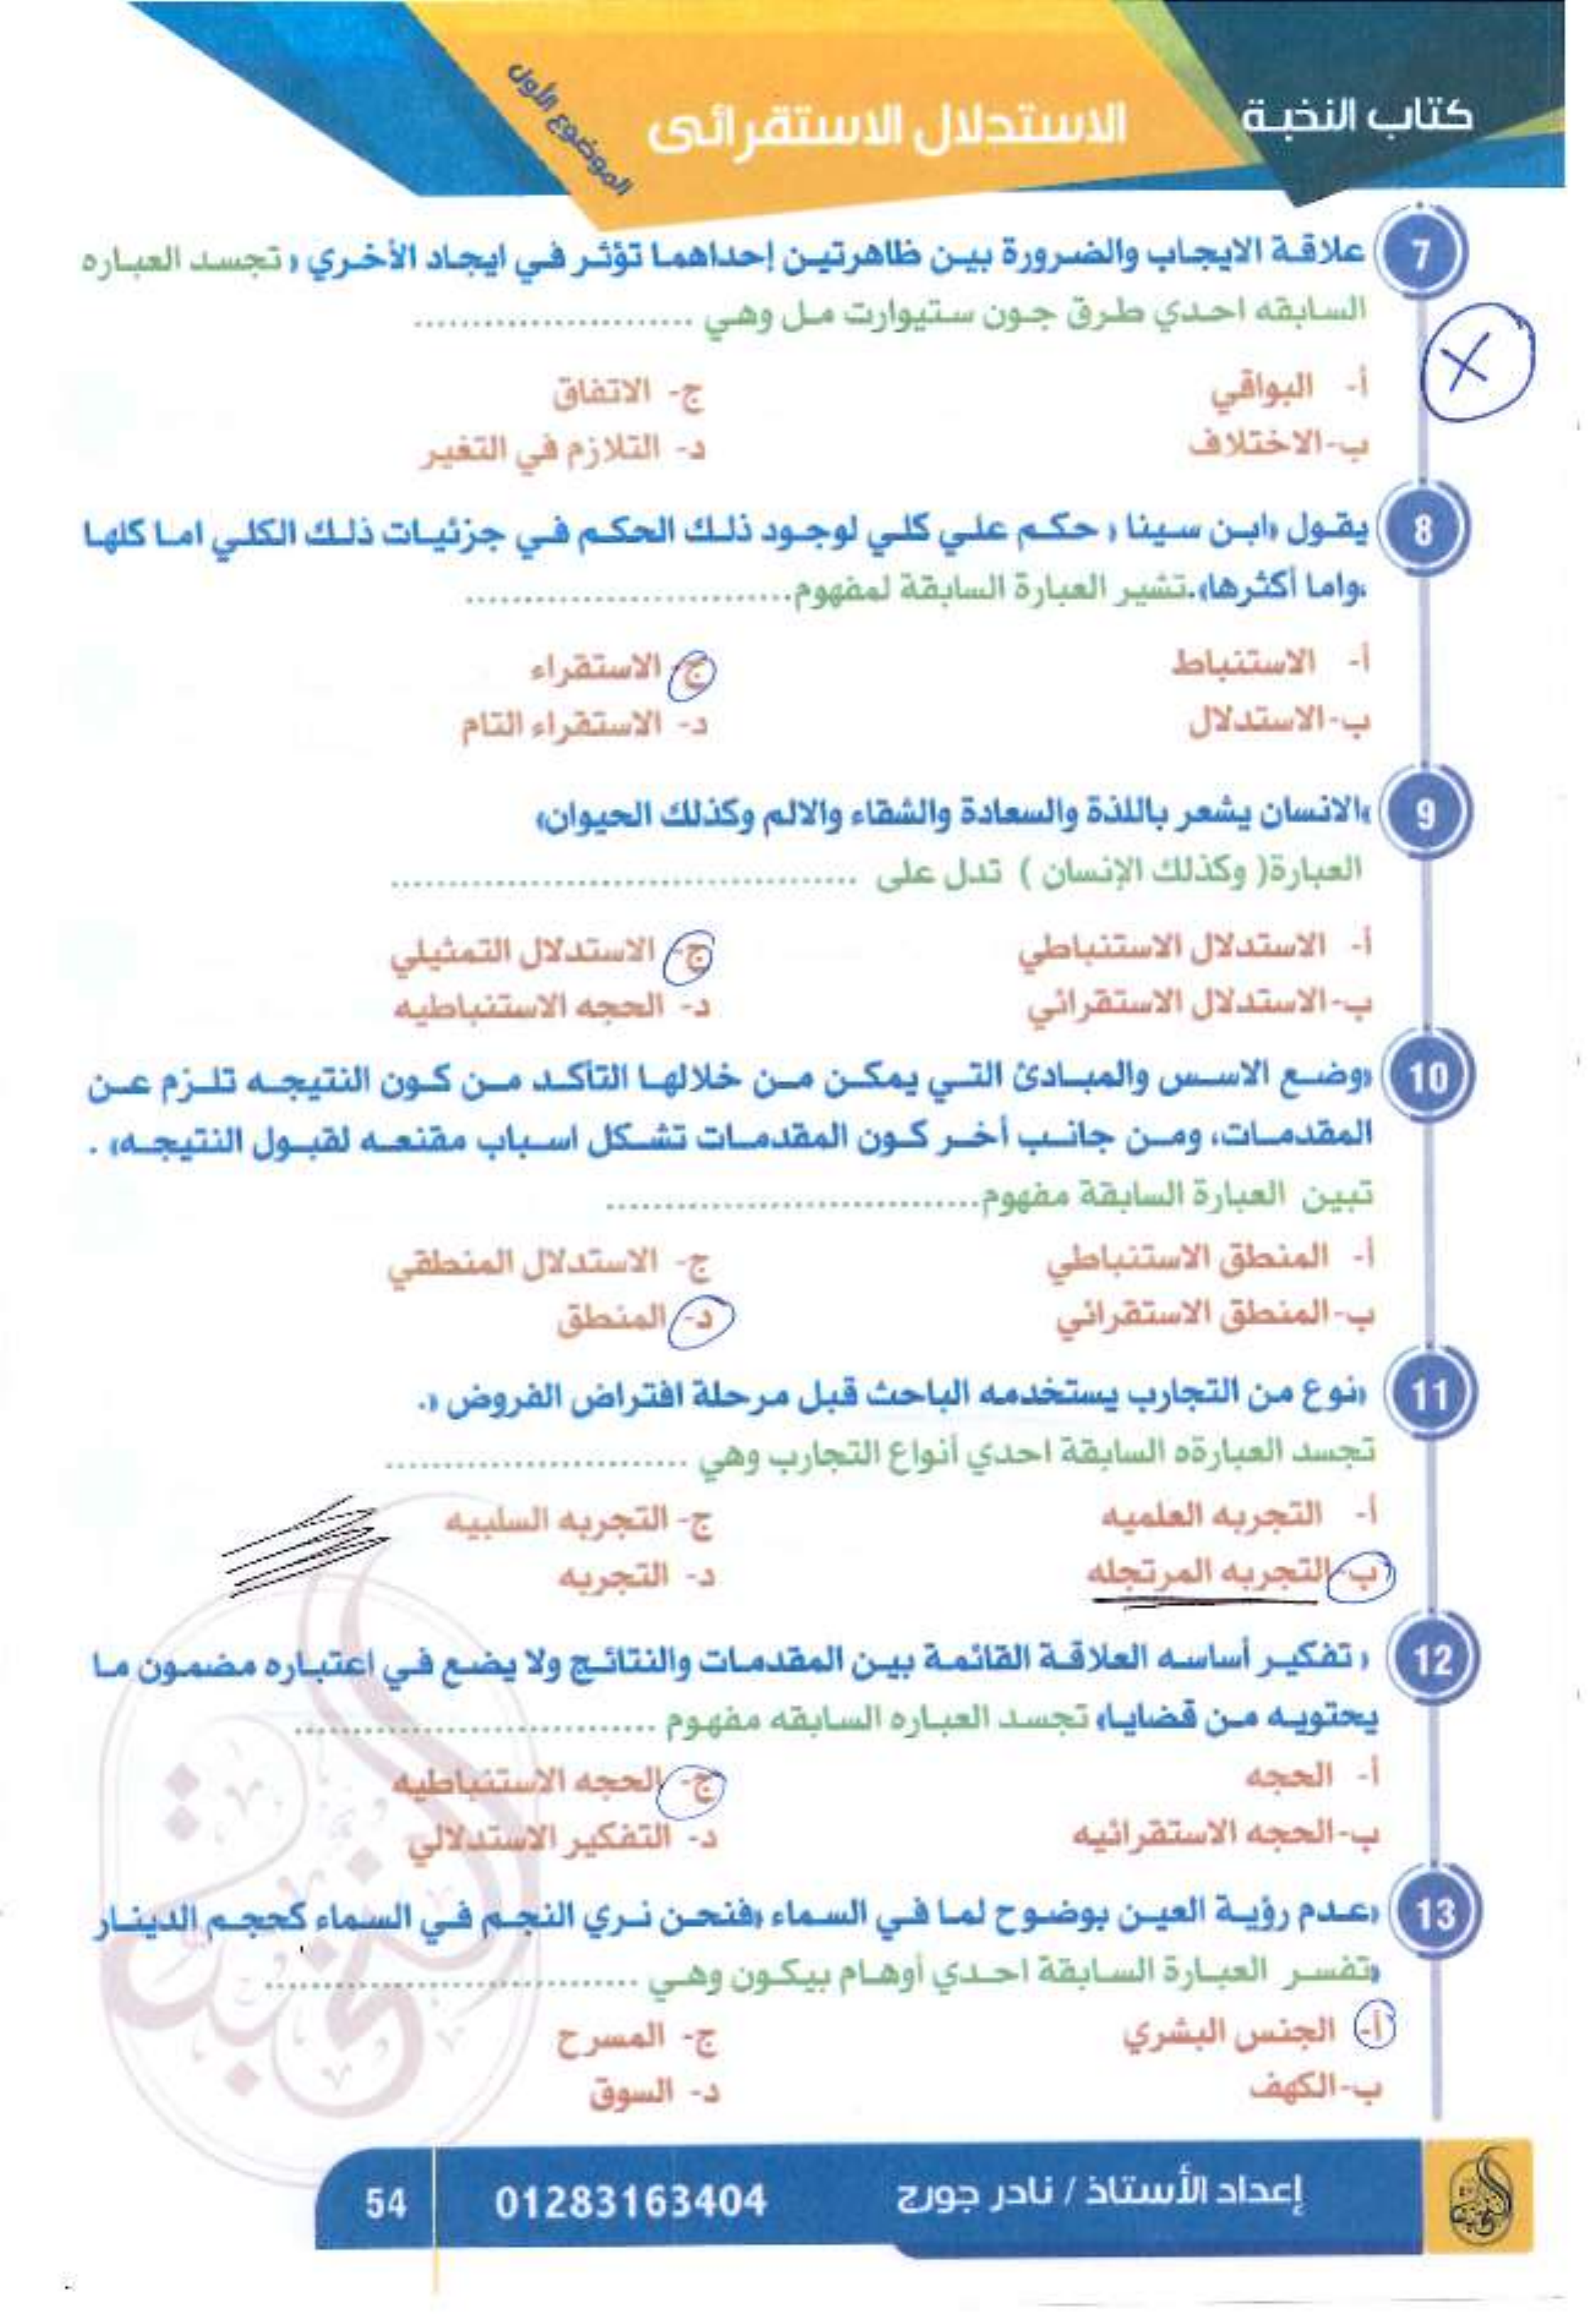 كتاب النخبة
الاستدلال الاستقرائى
الموضوع الأول
7 علاقة الايجاب والضرورة بين ظاهرتين إحداهما تؤثر في ايجاد الأخري » تجسد العباره
السابقه احدي طرق جون ستيوارت مل وهي ........................
أ- البواقي
ج- الاتفاق
ب-الاختلاف
د- التلازم في التغير
8 يقول «ابن سينا » حكم علي كلي لوجود ذلك الحكم في جزئيات ذلك الكلي اما كلها
،واما أكثرها».تشير العبارة السابقة لمفهوم............................
أ- الاستنباط
ج- الاستقراء
ب-الاستدلال
د- الاستقراء التام
9 «الانسان يشعر باللذة والسعادة والشقاء والالم وكذلك الحيوان»
العبارة( وكذلك الإنسان ) تدل على ........................................
أ- الاستدلال الاستنباطي
ج- الاستدلال التمثيلي
ب-الاستدلال الاستقرائي
د- الحجه الاستنباطيه
10 «وضع الاسس والمبادئ التي يمكن من خلالها التأكد من كون النتيجه تلزم عن
المقدمات، ومن جانب أخر كون المقدمات تشكل اسباب مقنعه لقبول النتيجه» .
تبين العبارة السابقة مفهوم................................
أ- المنطق الاستنباطي
ج- الاستدلال المنطقي
ب-المنطق الاستقرائي
د- المنطق
11 «نوع من التجارب يستخدمه الباحث قبل مرحلة افتراض الفروض ».
تجسد العبارةه السابقة احدي أنواع التجارب وهي ..........................
أ- التجربه العلميه
ج- التجربه السلبيه
ب-التجربه المرتجله
د- التجربه
12 « تفكير أساسه العلاقة القائمة بين المقدمات والنتائج ولا يضع في اعتباره مضمون ما
يحتويه من قضايا» تجسد العباره السابقه مفهوم ...............................
أ- الحجه
ج- الحجه الاستنباطيه
ب-الحجه الاستقرائيه
د- التفكير الاستدلالي
13 «عدم رؤية العين بوضوح لما في السماء «فنحن نري النجم في السماء كحجم الدينار
»تفسر العبارة السابقة احدي أوهام بيكون وهي ................................
أ- الجنس البشري
ج- المسرح
ب-الكهف
د- السوق
إعداد الأستاذ / نادر جورج
01283163404
54
النخبة